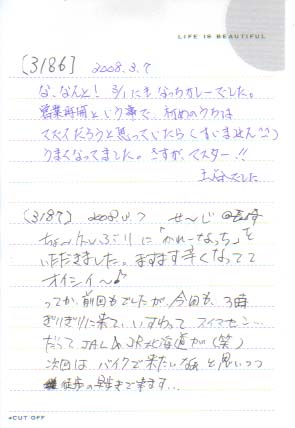 LIFE IS BEAUTIFUL
[3186] 2008.3.7
な、なんと! 3/1にもなっちカレーでした。
営業再開という事で、初めのうちは
マズイだろうと思っていたら(すいません^^)
うまくなってました。さすが、マスター!!
でした
[3187] 2008.3.7 せーじ
ちょ〜久しぶりに「かれーなっち」を
いただきました。ますます辛くなってて
オイシイ〜♪
ってか、前回もでしたが、今回も、3時
ぎりぎりに来て、いすわって スイマセン…
だって JAL & JR北海道が(笑)
次回は バイクで来たいなぁ と思いつつ
徒歩の早歩きで来ます…
CUT OFF